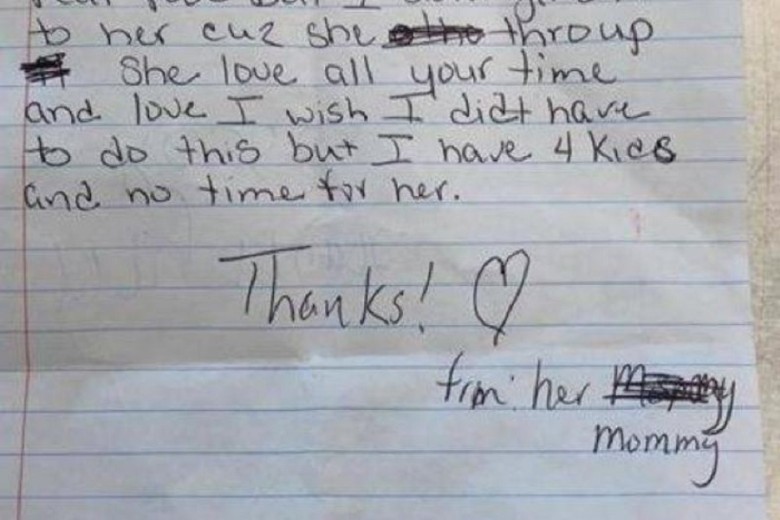 to her cuz she throup
She love all your time
and love I wish I did't have
to do this but I have 4 kids
and no time for her.
Thanks! ♡
frm her
mommy